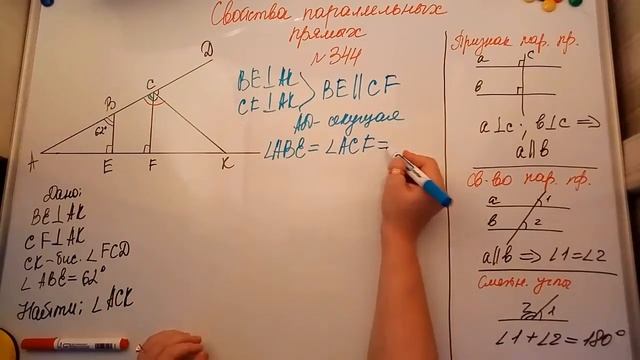 Свойства параллельных
прямых
№344
A
B
C
D
E
F
K
62°
BE⊥AK
CF⊥AK
BE∥CF
AD - секущая
∠ABE=∠ACF=
Дано:
BE⊥AK
CF⊥AK
CK-бис. ∠FCD
∠ABE=62°
Найти: ∠ACK
Признак пар. пр.
a
c
b
a⊥c; b⊥c ⇒
a∥b
Св-во пар. пр.
a
1
b
2
a∥b ⇒ ∠1=∠2
Смежн. угла
2
1
∠1+∠2=180°